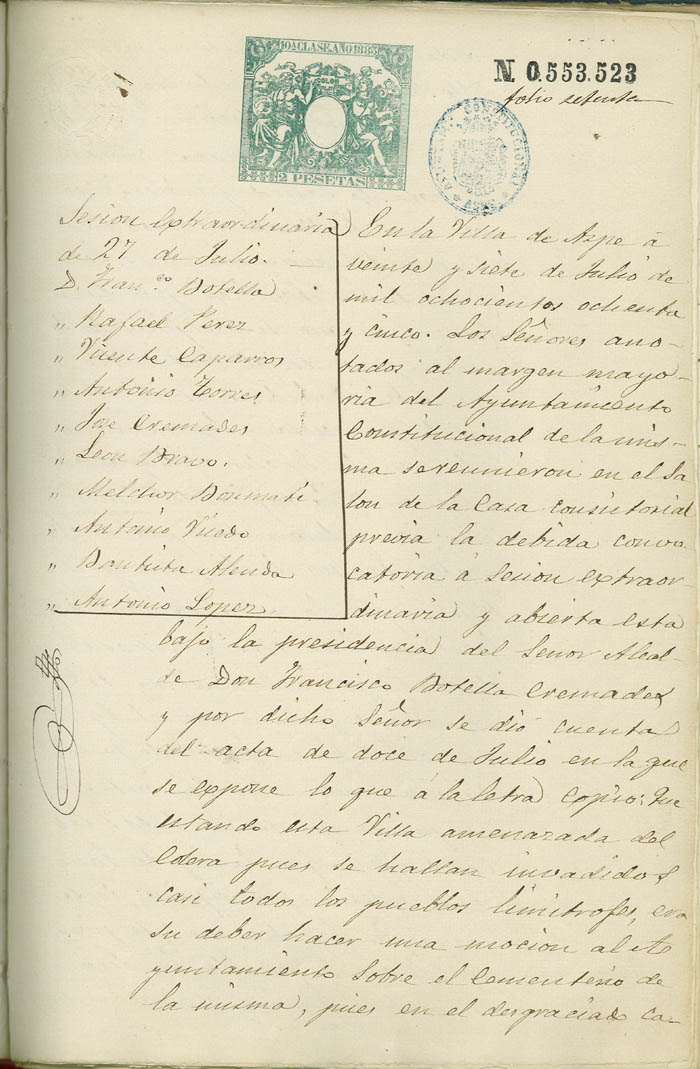 10A CLASE. AÑO 1885
2 PESETAS
N. 0.553.523
folio setenta
AYUNTAMIENTO CONSTITUCIONAL
ASPE
Sesion extraordinaria
de 27 de Julio.
D. Fran.co Botella
" Rafael Perez
" Vicente Caparros
" Antonio Torres
" Jose Cremades
" Leon Bravo.
" Melchor Bonmati
" Antonio
" Bautista Alenda
" Antonio Lopez
En la Villa de Aspe á
veinte y siete de Julio de
mil ochocientos ochenta
y cinco. Los Señores ano-
tados al margen mayo-
ria del Ayuntamiento
Constitucional de la mis-
ma se reunieron en el Sa
lon de la Casa consistorial
previa la debida convo
catoria á sesion extraor
dinaria y abierta esta
bajo la presidencia del Señor Alcal-
de Don Francisco Botella Cremades
y por dicho Señor se dió cuenta
del acta de doce de Julio en la que
se expone lo que á la letra copio: Que
estando esta Villa amenazada del
Colera pues se hallan invadidos
casi todos los pueblos limitrofes, era
su deber hacer una mocion al A
yuntamiento sobre el Cementerio de
la misma, pues en el desgraciado ca-